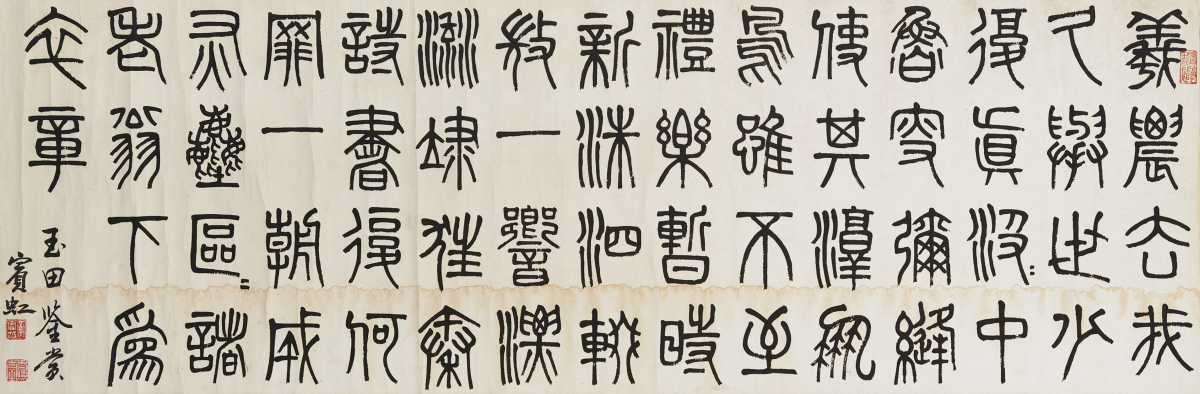 羲農去我
久舉世少
復真汲〻中
魯叟彌縫
使其淳鳳
鳥雖不至
禮樂暫時
新洙泗輟
微一響漂
流逮狂秦
詩書復何
罪一朝成
灰塵區〻諸
老翁下為
卒章
玉田鉴赏
賓虹